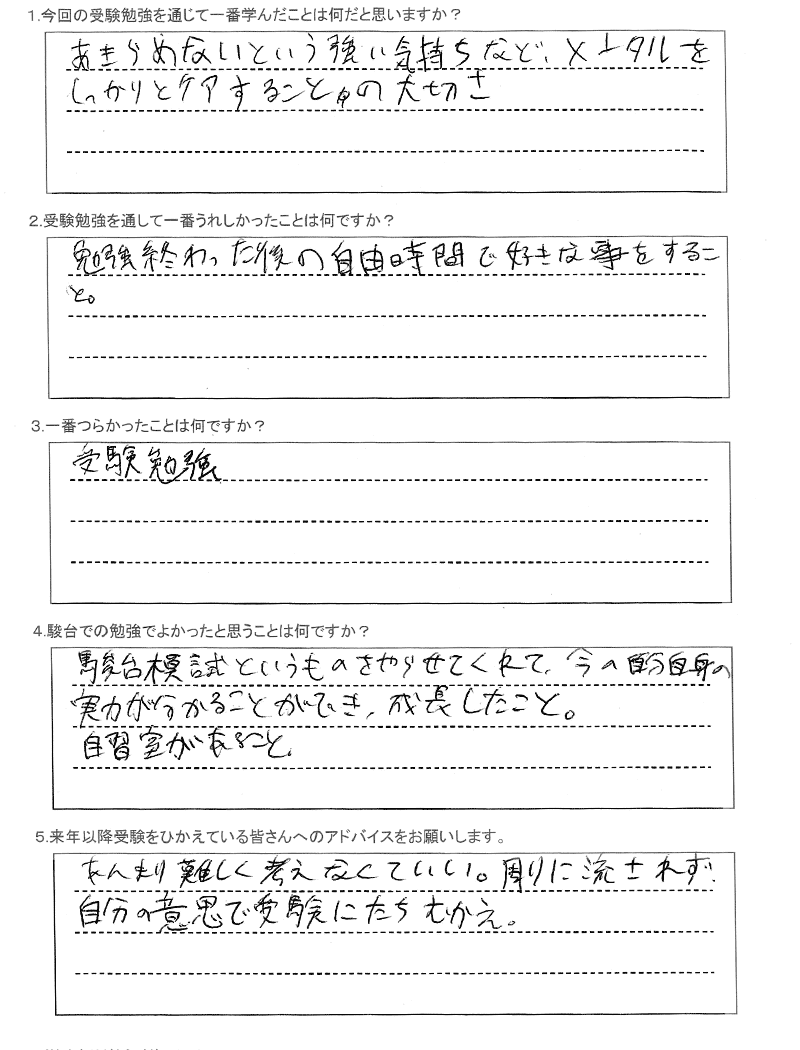 1.今回の受験勉強を通じて一番学んだことは何だと思いますか？
あきらめないという強い気持ちなど、メンタルを
しっかりとケアすることの大切さ
2.受験勉強を通して一番うれしかったことは何ですか？
勉強終わった後の自由時間で好きな事をするこ
と。
3.一番つらかったことは何ですか？
受験勉強
4.駿台での勉強でよかったと思うことは何ですか？
駿台模試というものをやらせてくれて、今の自分自身の
実力が分かることができ、成長したこと。
自習室があること。
5.来年以降受験をひかえている皆さんへのアドバイスをお願いします。
あんまり難しく考えなくていい。周りに流されず、
自分の意思で受験にたちむかえ。